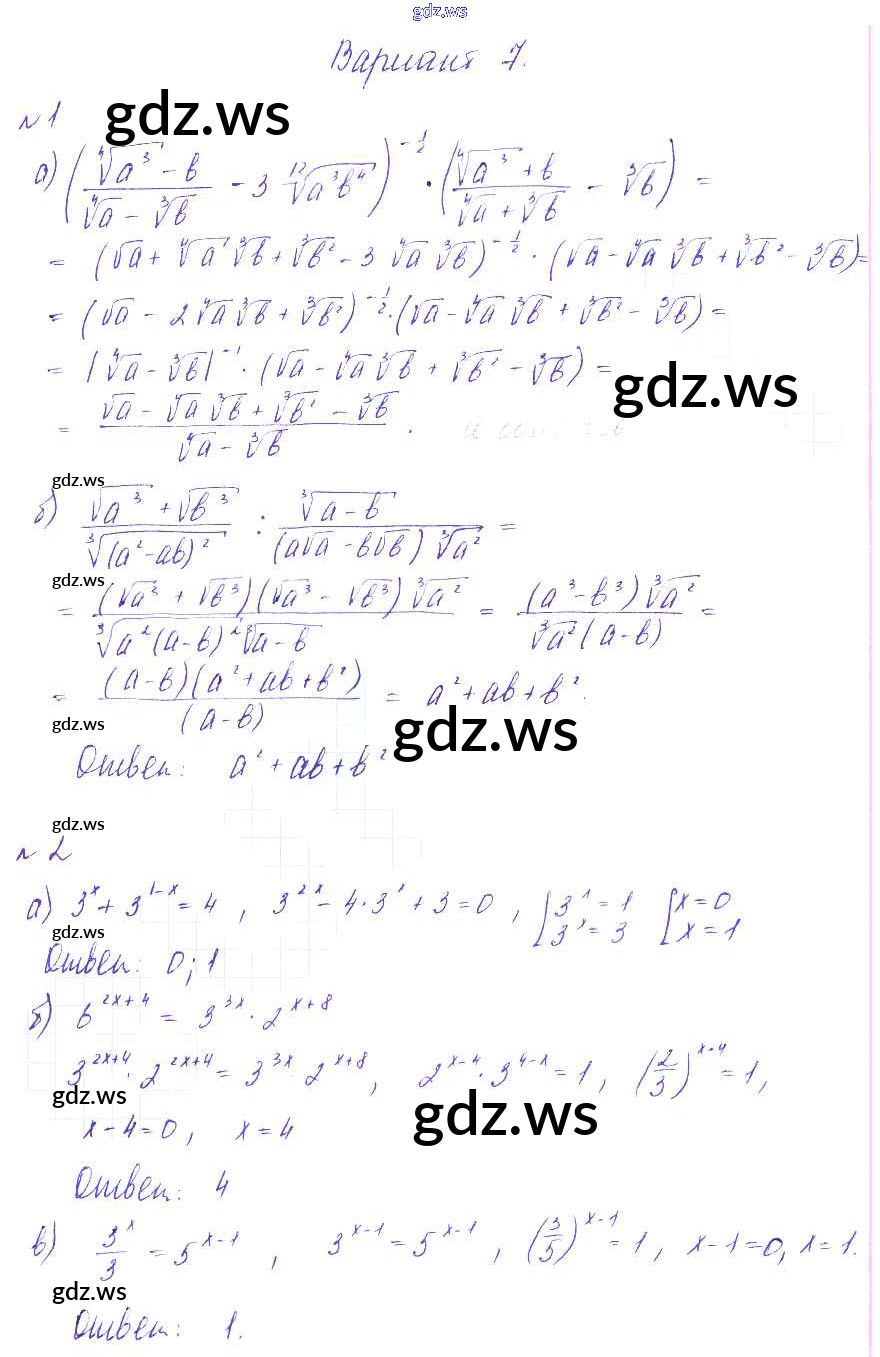 gdz.ws
Вариант 7.
gdz.ws
№1
а) ((⁴√a³ - b)/(⁴√a - ³√b) - 3 ¹²√(a³b⁴))^(-1/2) · ((⁴√a³ + b)/(⁴√a + ³√b) - ³√b) =
= (√a + ⁴√a ³√b + ³√b² - 3 ⁴√a ³√b)^(-1/2) · (√a - ⁴√a ³√b + ³√b² - ³√b) =
= (√a - 2 ⁴√a ³√b + ³√b²)^(-1/2) · (√a - ⁴√a ³√b + ³√b² - ³√b) =
= |⁴√a - ³√b|^(-1) · (√a - ⁴√a ³√b + ³√b² - ³√b) =
gdz.ws
= (√a - ⁴√a ³√b + ³√b² - ³√b)/(⁴√a - ³√b) .
gdz.ws
б) (√a³ + √b³)/(³√(a² - ab)²) : (³√(a - b))/((a√a - b√b) ³√a²) =
gdz.ws
= ((√a³ + √b³)(√a³ - √b³) ³√a²)/(³√(a²(a - b)²) ³√(a - b)) = ((a³ - b³) ³√a²)/(³√a² (a - b)) =
= ((a - b)(a² + ab + b²))/((a - b)) = a² + ab + b².
gdz.ws
gdz.ws
Ответ: a² + ab + b²
gdz.ws
№2
а) 3^x + 3^(1-x) = 4 , 3^(2x) - 4·3^x + 3 = 0 , [3^x = 1 [x = 0
3^x = 3 x = 1
gdz.ws
Ответ: 0; 1
б) 6^(2x+4) = 3^(3x) · 2^(x+8)
3^(2x+4) · 2^(2x+4) = 3^(3x) · 2^(x+8) , 2^(x-4) · 3^(4-x) = 1 , (2/3)^(x-4) = 1 ,
gdz.ws
gdz.ws
x - 4 = 0 , x = 4
Ответ: 4
в) 3^x/3 = 5^(x-1) , 3^(x-1) = 5^(x-1) , (3/5)^(x-1) = 1 , x - 1 = 0, x = 1.
gdz.ws
Ответ: 1.